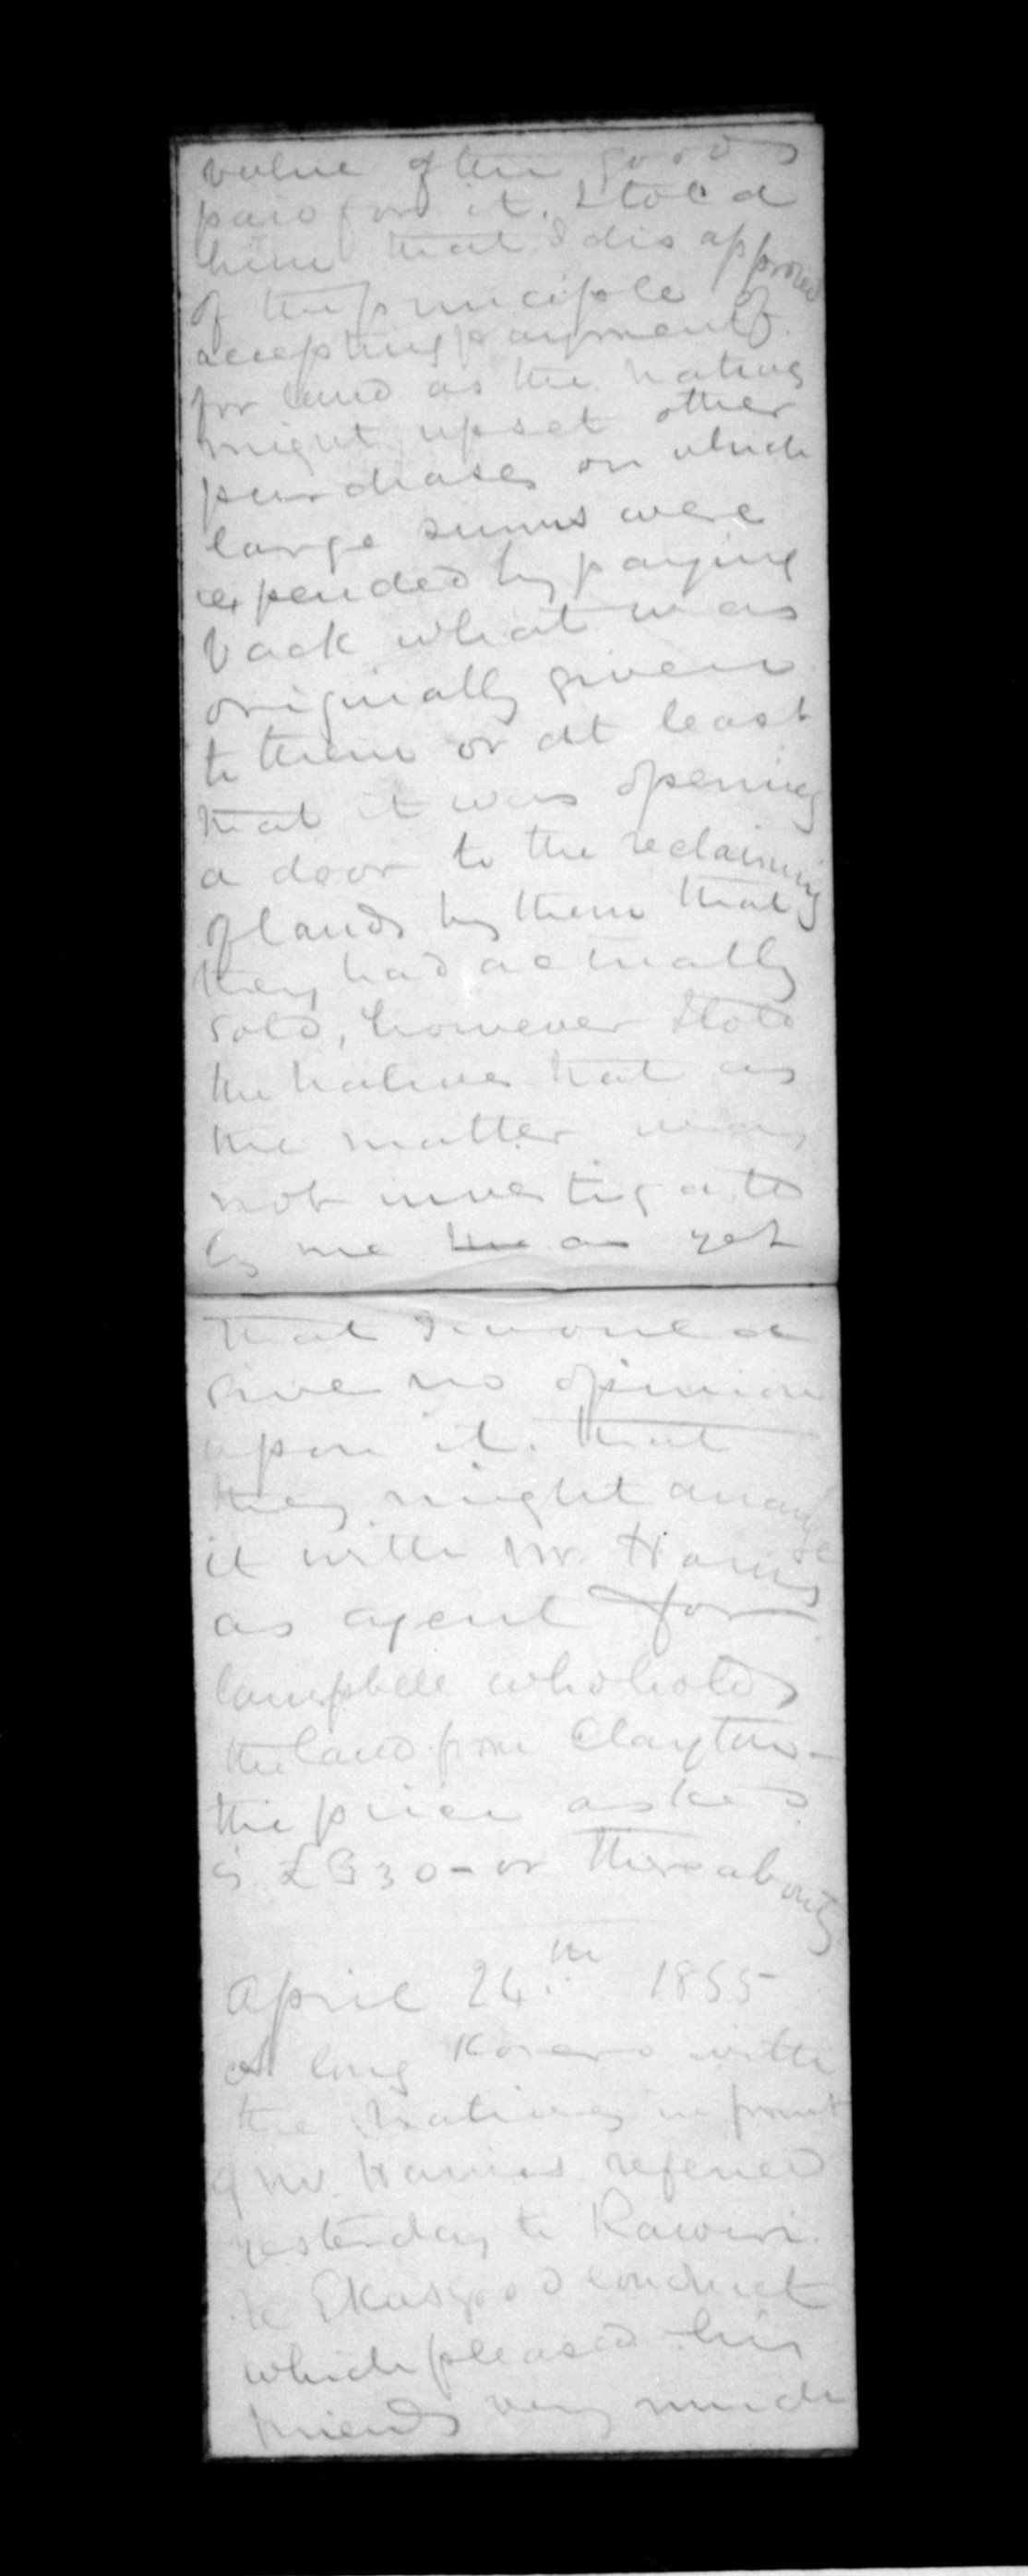 value of the goods
paid for it. I told
him that I disapproved
of the principle of
accepting payment
for land as the natives
might upset other
purchases on which
large sums were
expended by paying
back what was
originally given
to them or at least
that it was opening
a door to the reclaiming
of lands by them that
they had actually
sold, however I told
the natives that as
the matter was
not investigated
by me the as yet
that I would
give no opinion
upon it. that
they might arrange
it with Mr. Harris
as agent for
Campbell who holds
the land from Clayton -
the price asked
is £330 - or thereabouts
April 24th 1855
A long Korero with
the natives in front
of Mr. Harris referred
yesterday to Rawiri
good conduct
which pleased his
friends very much